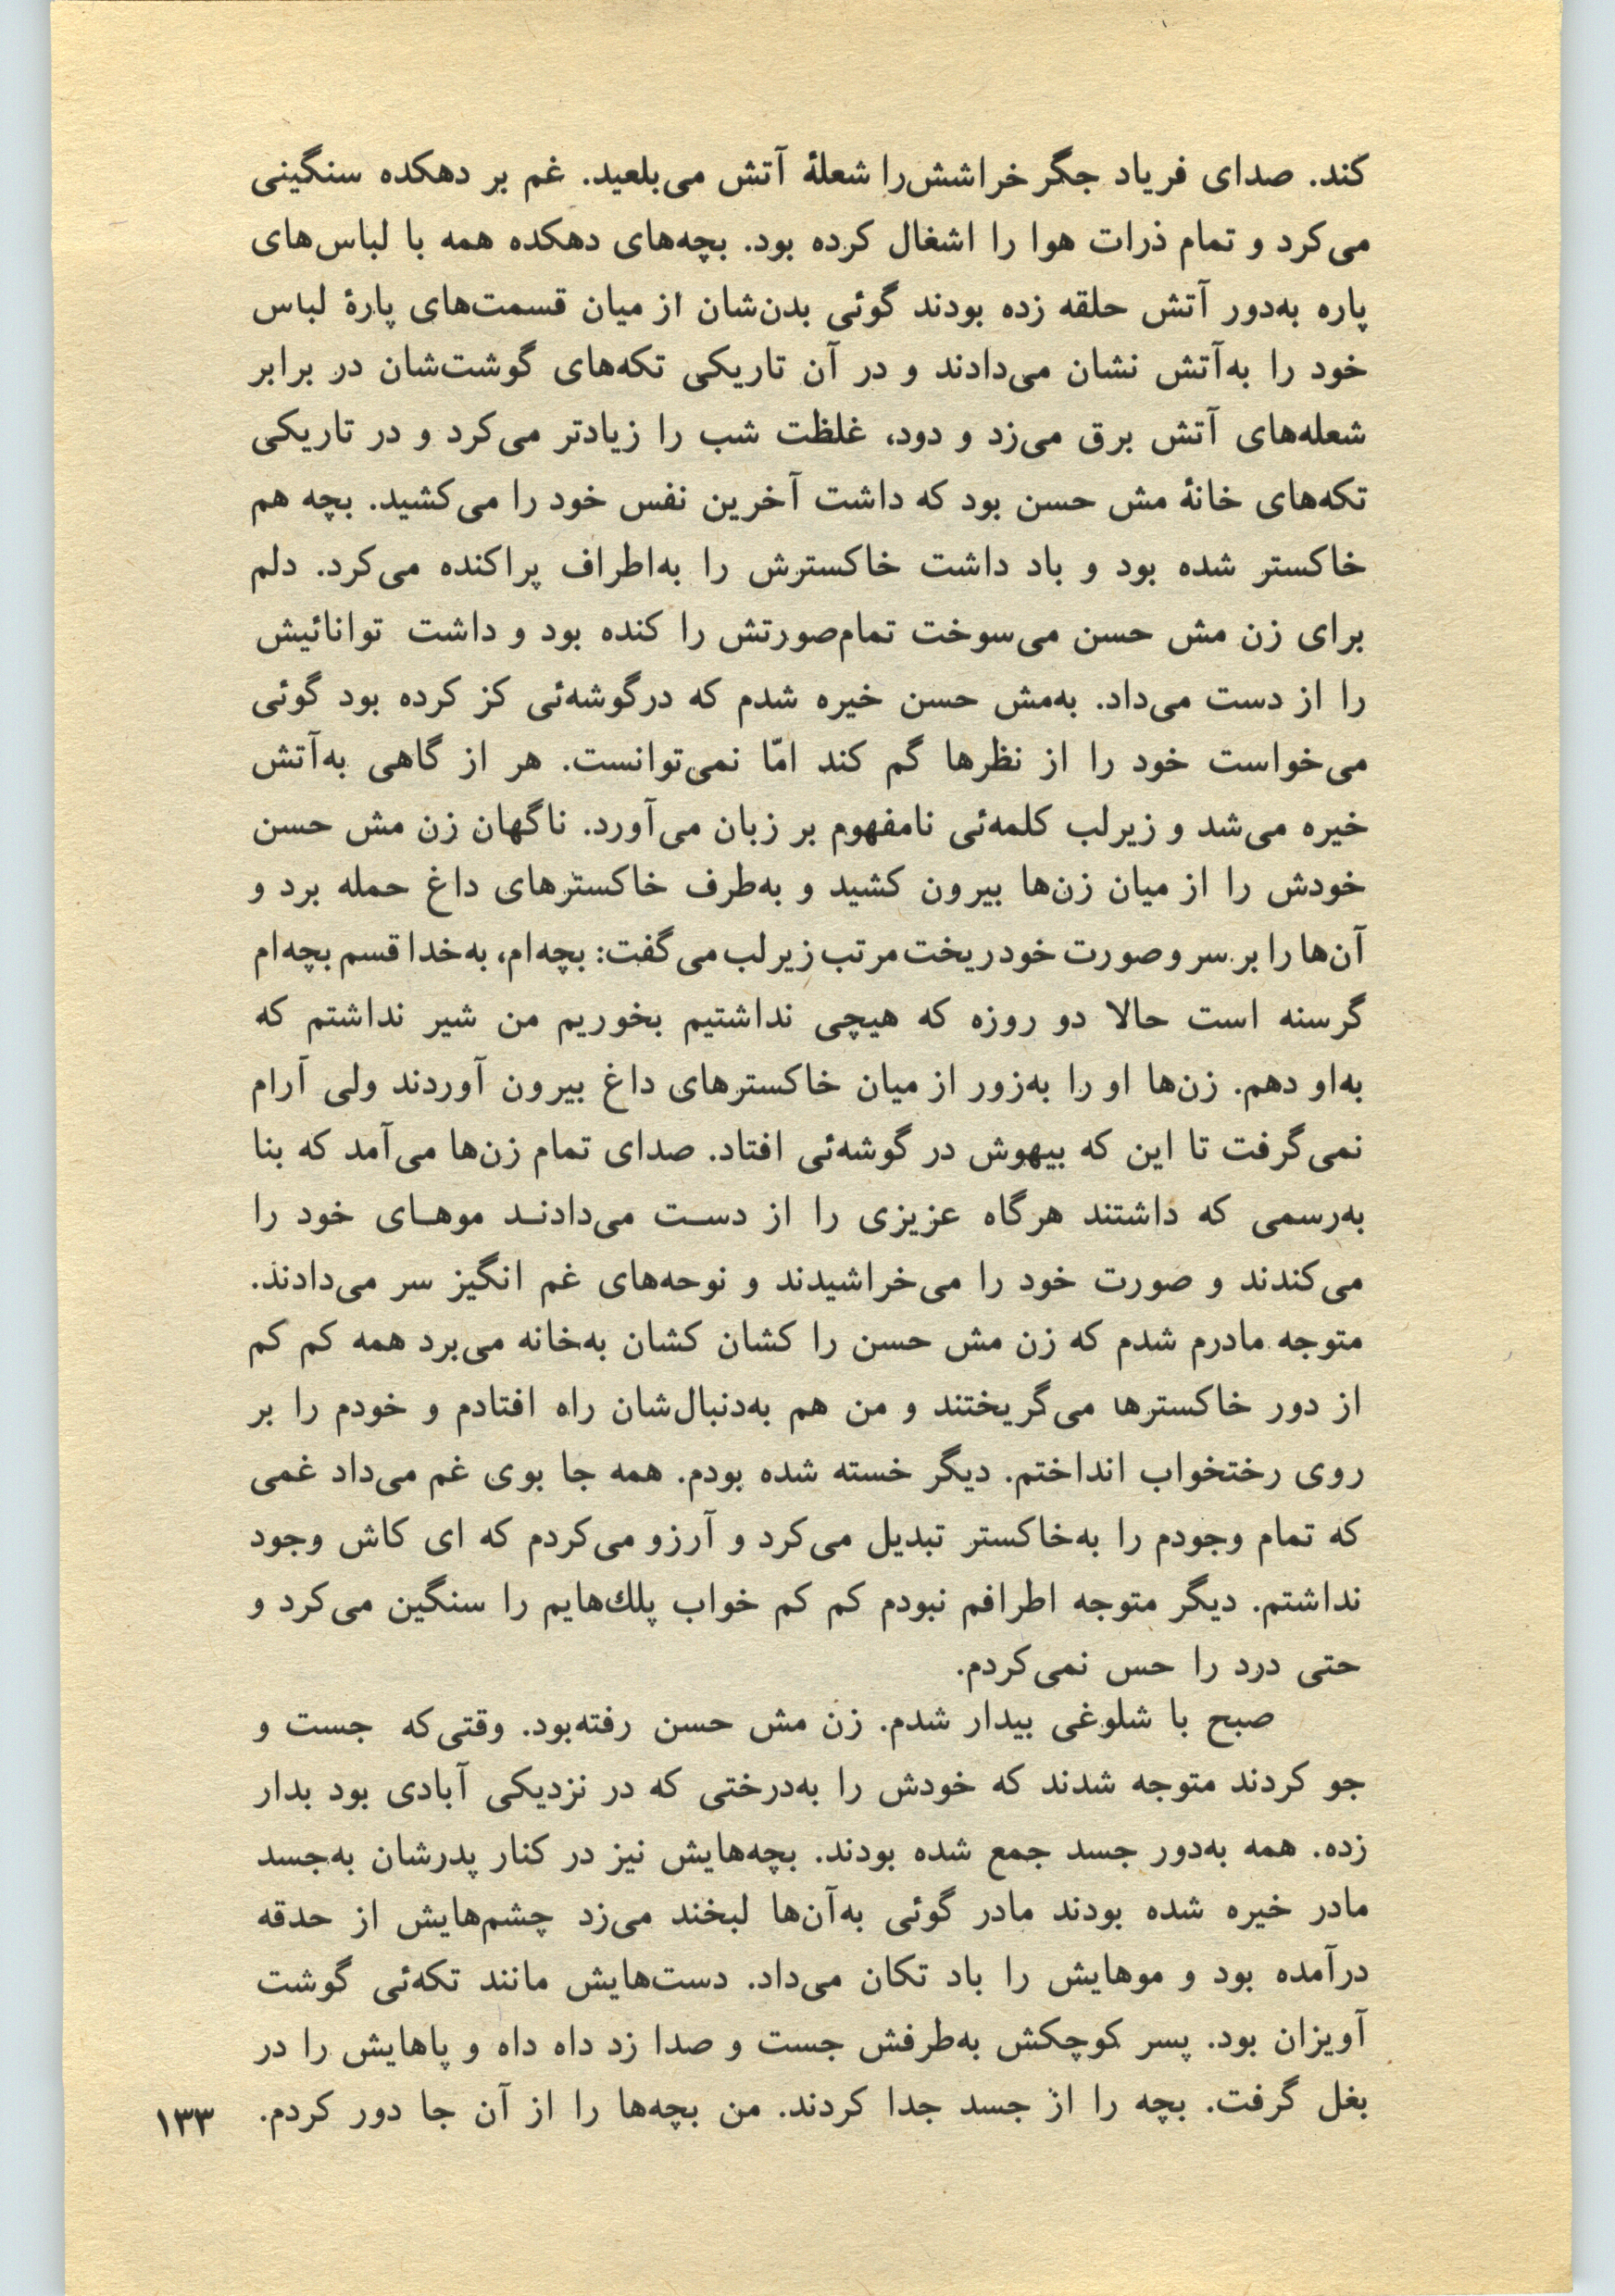 کند. صدای فریاد جگر خراشش‌را شعلهٔ آتش می‌بلعید. غم بر دهکده سنگینی
می‌کرد و تمام ذرات هوا را اشغال کرده بود. بچه‌های دهکده همه با لباس‌های
پاره به‌دور آتش حلقه زده بودند گوئی بدن‌شان از میان قسمت‌های پارهٔ لباس
خود را به‌آتش نشان می‌دادند و در آن تاریکی تکه‌های گوشت‌شان در برابر
شعله‌های آتش برق می‌زد و دود، غلظت شب را زیادتر می‌کرد و در تاریکی
تکه‌های خانهٔ مش حسن بود که داشت آخرین نفس خود را می‌کشید. بچه هم
خاکستر شده بود و باد داشت خاکسترش را به‌اطراف پراکنده می‌کرد. دلم
برای زن مش حسن می‌سوخت تمام‌صورتش را کنده بود و داشت توانائیش
را از دست می‌داد. به‌مش حسن خیره شدم که درگوشه‌ئی کز کرده بود گوئی
می‌خواست خود را از نظرها گم کند امّا نمی‌توانست. هر از گاهی به‌آتش
خیره می‌شد و زیرلب کلمه‌ئی نامفهوم بر زبان می‌آورد. ناگهان زن مش حسن
خودش را از میان زن‌ها بیرون کشید و به‌طرف خاکسترهای داغ حمله برد و
آن‌ها را بر سر و صورت خود ریخت مرتب زیر لب می‌گفت: بچه‌ام، به‌خدا قسم بچه‌ام
گرسنه است حالا دو روزه که هیچی نداشتیم بخوریم من شیر نداشتم که
به‌او دهم. زن‌ها او را به‌زور از میان خاکسترهای داغ بیرون آوردند ولی آرام
نمی‌گرفت تا این که بیهوش در گوشه‌ئی افتاد. صدای تمام زن‌ها می‌آمد که بنا
به‌رسمی که داشتند هرگاه عزیزی را از دست می‌دادند موهای خود را
می‌کندند و صورت خود را می‌خراشیدند و نوحه‌های غم انگیز سر می‌دادند.
متوجه مادرم شدم که زن مش حسن را کشان کشان به‌خانه می‌برد همه کم کم
از دور خاکسترها می‌گریختند و من هم به‌دنبال‌شان راه افتادم و خودم را بر
روی رختخواب انداختم. دیگر خسته شده بودم. همه جا بوی غم می‌داد غمی
که تمام وجودم را به‌خاکستر تبدیل می‌کرد و آرزو می‌کردم که ای کاش وجود
نداشتم. دیگر متوجه اطرافم نبودم کم کم خواب پلك‌هایم را سنگین می‌کرد و
حتی درد را حس نمی‌کردم.
صبح با شلوغی بیدار شدم. زن مش حسن رفته‌بود. وقتی‌که جست و
جو کردند متوجه شدند که خودش را به‌درختی که در نزدیکی آبادی بود بدار
زده. همه به‌دور جسد جمع شده بودند. بچه‌هایش نیز در کنار پدرشان به‌جسد
مادر خیره شده بودند مادر گوئی به‌آن‌ها لبخند می‌زد چشم‌هایش از حدقه
درآمده بود و موهایش را باد تکان می‌داد. دست‌هایش مانند تکه‌ئی گوشت
آویزان بود. پسر کوچکش به‌طرفش جست و صدا زد داه داه و پاهایش را در
بغل گرفت. بچه را از جسد جدا کردند. من بچه‌ها را از آن جا دور کردم.
۱۳۳